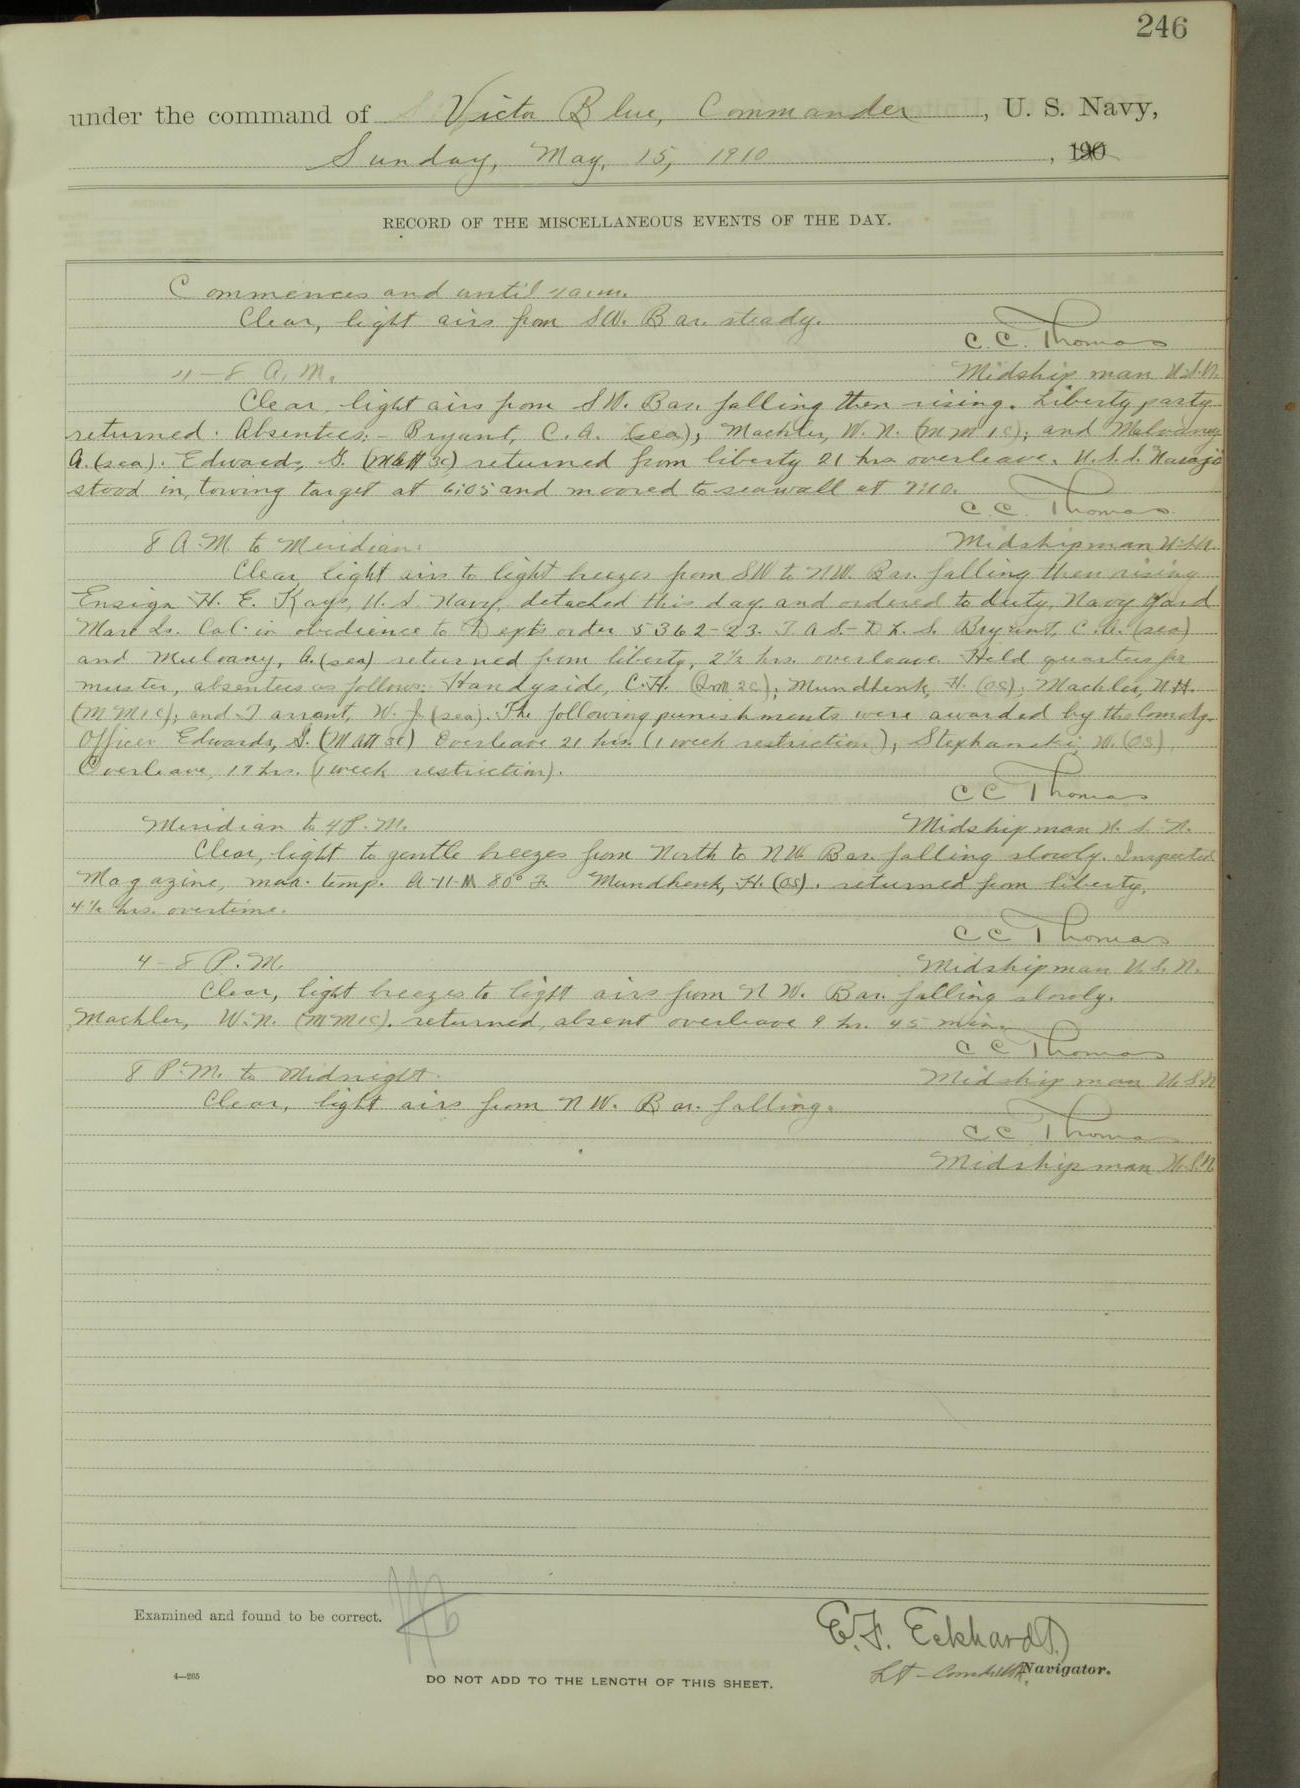 246
under the command of Victor Blue, Commander, U. S. Navy,
Sunday, May, 15, 1910, 190
RECORD OF THE MISCELLANEOUS EVENTS OF THE DAY.
Commences and until 4 a.m.
Clear, light airs from SW. Bar. steady.
C. C. Thomas
4-8 A. M. Midshipman U.S.N.
Clear, light airs from SW. Bar. falling then rising. Liberty party
returned. Absentees:- Bryant, C. A. (sea); Machler, W. N. (MM1C); and Mulvany
A. (sea). Edwards, G. (Matt 3c) returned from liberty 21 hrs overleave. U.S.S. Navajo
stood in, towing target at 6:05 and moored to seawall at 7:10.
C. C. Thomas
8 A.M. to Meridian: Midshipman U.S.N.
Clear, light airs to light breezes from SW to NW. Bar. falling then rising
Ensign H. E. Kays, U. S. Navy, detached this day and ordered to duty, Navy Yard
Mare Is. Cal. in obedience to Dept's order 5362-23. Bryant, C. A. (sea)
and Mulvany, A. (sea) returned from liberty, 2½ hrs. overleave. Held quarters for
muster, absentees as follows: Handyside, C. H. 2C); Mundhenk, H. (OS); Machler,
(MM1C); and Tarrant, W. J. (sea). The following punishments were awarded by the Comdg-
Officer Edwards, (Matt 3c) Overleave 21 hrs (1 week restriction); Stephanski, W. (OS)
Overleave, 19 hrs. (1 week restriction).
C C Thomas
Meridian to 4 P. M. Midshipman U. S. N.
Clear, light to gentle breezes from North to NW Bar. falling slowly. Inspected
Magazine, max. temp. A-11-M 80° F. Mundhenk, H. (OS). returned from liberty,
4½ hrs. overtime.
C C Thomas
4-8 P. M. Midshipman U. S. N.
Clear, light breezes to light airs from N W. Bar. falling slowly.
Machler, W. N. (MM1C). returned, absent overleave 9 hr. 45 min.
C C Thomas
8 P.M. to Midnight. Midshipman U.S.N
Clear, light airs from NW. Bar. falling.
C C Thomas
Midshipman U.S.N.
Examined and found to be correct.
E. F. Eckhardt
Lt-Comdr USN. Navigator.
4—265
DO NOT ADD TO THE LENGTH OF THIS SHEET.